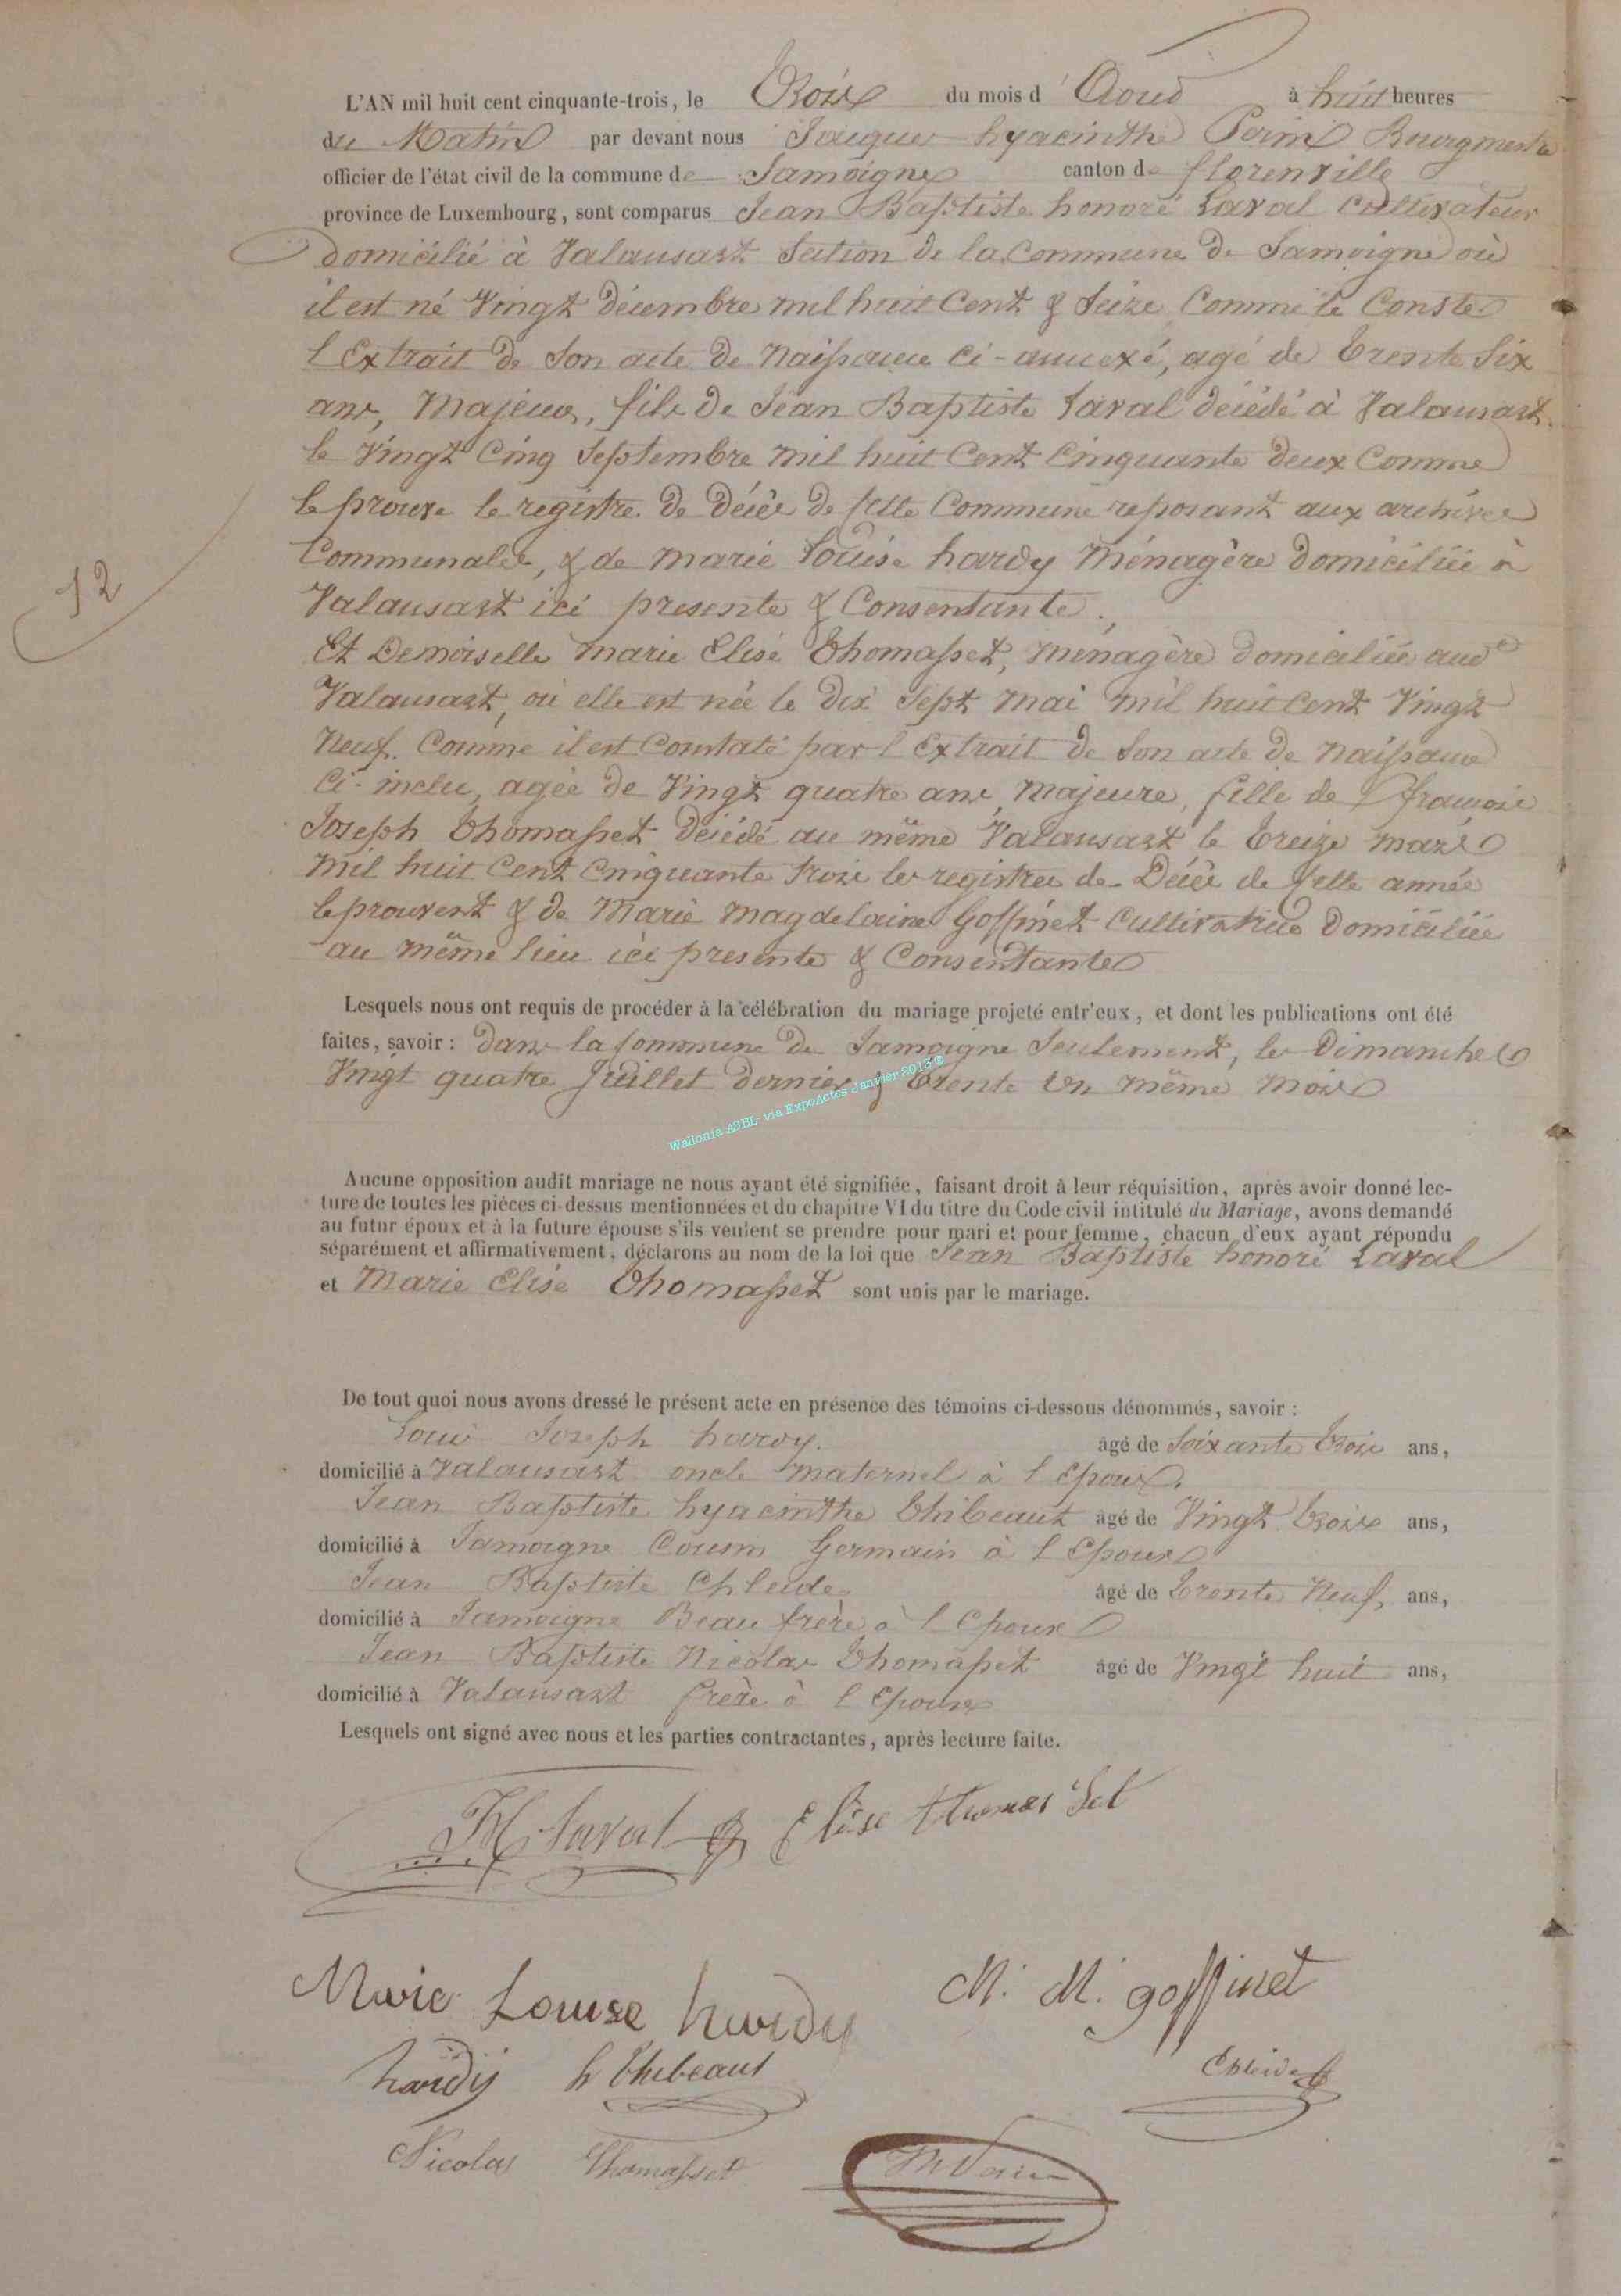 L'AN mil huit cent cinquante-trois, le Trois du mois d' Aout à huit heures
du Matin par devant nous Jacques hyacinthe Perin Bourgmestre
officier de l'état civil de la commune de Jamoigne canton de florenville
province de Luxembourg, sont comparus Jean Baptiste honoré Laval Cultivateur
domicilié à Valansart Section de la Commune de Jamoigne où
il est né Vingt décembre mil huit Cent & Seize Comme le Conste
l Extrait de Son acte de Naissance Ci-annexé, agé de Trente Six
ans, Majeur, fils de Jean Baptiste Laval décédé à Valansart
le Vingt Cinq Septembre mil huit Cent Cinquante deux Comme
le prouve le registre de Décès de cette Commune reposant aux archives
Communales, & de marie Louise hardy Ménagère domiciliée à
Valansart ici presente & Consentante.
Et Demoiselle marie Elise Thomasset, ménagère domiciliée aud
Valansart, où elle est née le dix Sept mai mil huit Cent Vingt
Neuf. Comme il est Constaté par l Extrait de Son acte de Naissance
Ci-inclu, agée de Vingt quatre ans, majeure, fille de françois
Joseph Thomasset décédé au même Valansart le Treize mars
mil huit Cent Cinquante trois les registres de Décès de cette année
le prouvent & de Marie magdelaine Goffinet Cultivatrice Domiciliée
au même lieu ici presente & Consentante
Lesquels nous ont requis de procéder à la célébration du mariage projeté entr'eux, et dont les publications ont été
faites, savoir : dans la Commune de Jamoigne Seulement, les Dimanches
Vingt quatre Juillet dernier & Trente Un même mois
Wallonia ASBL via ExpoActes Janvier 2013 ®
Aucune opposition audit mariage ne nous ayant été signifiée, faisant droit à leur réquisition, après avoir donné lec-
ture de toutes les pièces ci-dessus mentionnées et du chapitre VI du titre du Code civil intitulé du Mariage, avons demandé
au futur époux et à la future épouse s'ils veulent se prendre pour mari et pour femme, chacun d'eux ayant répondu
séparément et affirmativement, déclarons au nom de la loi que Jean Baptiste honoré Laval
et Marie Elise Thomasset sont unis par le mariage.
De tout quoi nous avons dressé le présent acte en présence des témoins ci-dessous dénommés, savoir :
Louis Joseph hardy. âgé de Soixante Trois ans,
domicilié à Valansart oncle maternel à l Epoux.
Jean Baptiste hyacinthe Thibeaut âgé de Vingt Trois ans,
domicilié à Jamoigne Cousin Germain à l Epoux
Jean Baptiste Chleide âgé de Trente Neuf ans,
domicilié à Jamoigne Beau frère à l Epoux
Jean Baptiste Nicolas Thomasset âgé de Vingt huit ans,
domicilié à Valansart frère à l Epouse
Lesquels ont signé avec nous et les parties contractantes, après lecture faite.
JH Laval Elise Thomas Set
Marie Louise hardy M. M. goffinet
hardy h Thibeaut Chleide
Nicolas Thomasset
12